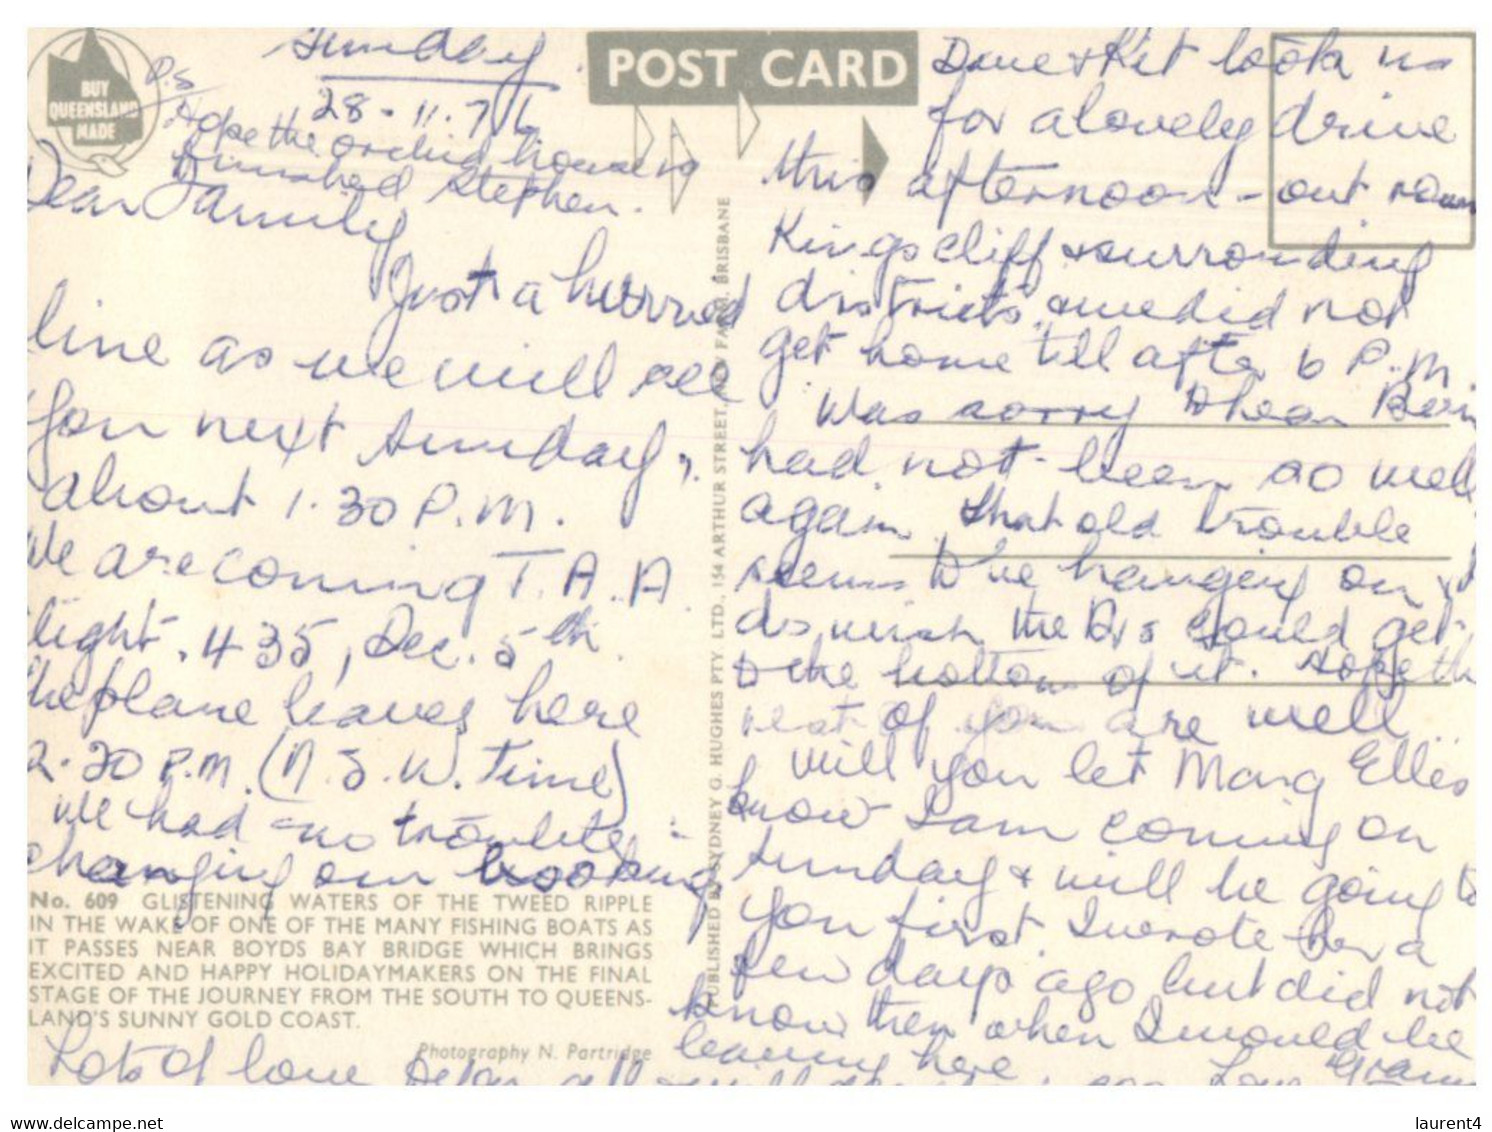 BUY
QUEENSLAND
MADE
POST CARD
Sunday
28-11-76
P.S
Hope the orchid house is
finished Stephen.
Dear Family
Just a hurried
line as we will see
you next Sunday,
about 1.30 P.M.
We are coming T.A.A.
flight. 435, Dec. 5th.
The plane leaves here
2.30 P.M. (N.S.W. Time)
We had no trouble
changing our booking
No. 609 GLISTENING WATERS OF THE TWEED RIPPLE
IN THE WAKE OF ONE OF THE MANY FISHING BOATS AS
IT PASSES NEAR BOYDS BAY BRIDGE WHICH BRINGS
EXCITED AND HAPPY HOLIDAYMAKERS ON THE FINAL
STAGE OF THE JOURNEY FROM THE SOUTH TO QUEENS-
LAND'S SUNNY GOLD COAST.
Photography N. Partridge
PUBLISHED BY SYDNEY G. HUGHES PTY. LTD., 154 ARTHUR STREET, NEW FARM, BRISBANE
Dave & Kit took us
for a lovely drive
this afternoon - out roun
Kingscliff & surrounding
districts, & we did not
get home till after 6 P.M.
Was sorry to hear
had not been so well
again that old trouble
seems to be hanging on &
do wish the Drs could get
to the bottom of it. Hope th
rest of you are well.
Will you let Marg Ellis
know I am coming on
Sunday & will be going to
you first. I wrote her a
few days ago but did not
know then when I would be
leaving here.
Lots of love all Love Gran
laurent4